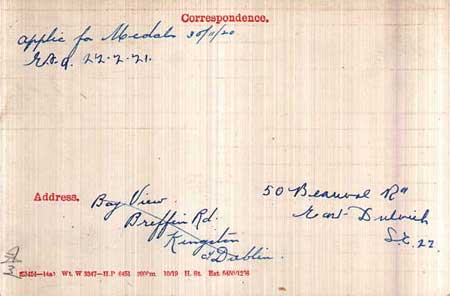 Correspondence.
Applic for Medals 30/11/20
22.2.21.
Address.
Bay View
Breffin Rd.
Kingston
Co Dublin.
50 Beauval Rd
East Dulwich
S.E. 22.
Wt. W 5347—H.P 6451 10/19 H. St.